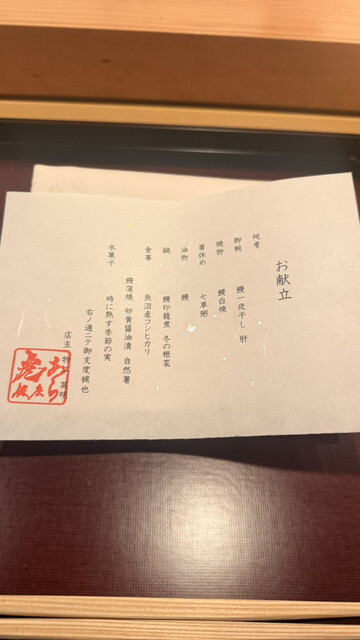 お献立
祝肴
御椀 鰻一夜干し 肝
焼物 鰻白焼
箸休め 七草粥
油物 鰻
鍋 鰻印籠煮 冬の根菜
食事 魚沼産コシヒカリ
鰻蒲焼 卵黄醤油漬 自然薯
水菓子 時に熟す季節の実
右ノ通ニテ御支度候也
店主